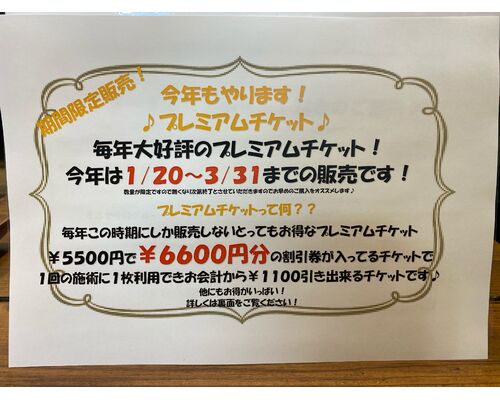 期間限定販売！
今年もやります！
♪プレミアムチケット♪
毎年大好評のプレミアムチケット！
今年は1/20～3/31までの販売です！
数量が限定ですので無くなり次第終了とさせていただきますのでお早めのご購入をオススメします♪
プレミアムチケットって何？？
毎年この時期にしか販売しないとってもお得なプレミアムチケット
￥5500円で￥6600円分の割引券が入ってるチケットで
1回の施術に1枚利用できお会計から￥1100引き出来るチケットです♪
他にもお得がいっぱい！
詳しくは裏面をご覧ください！